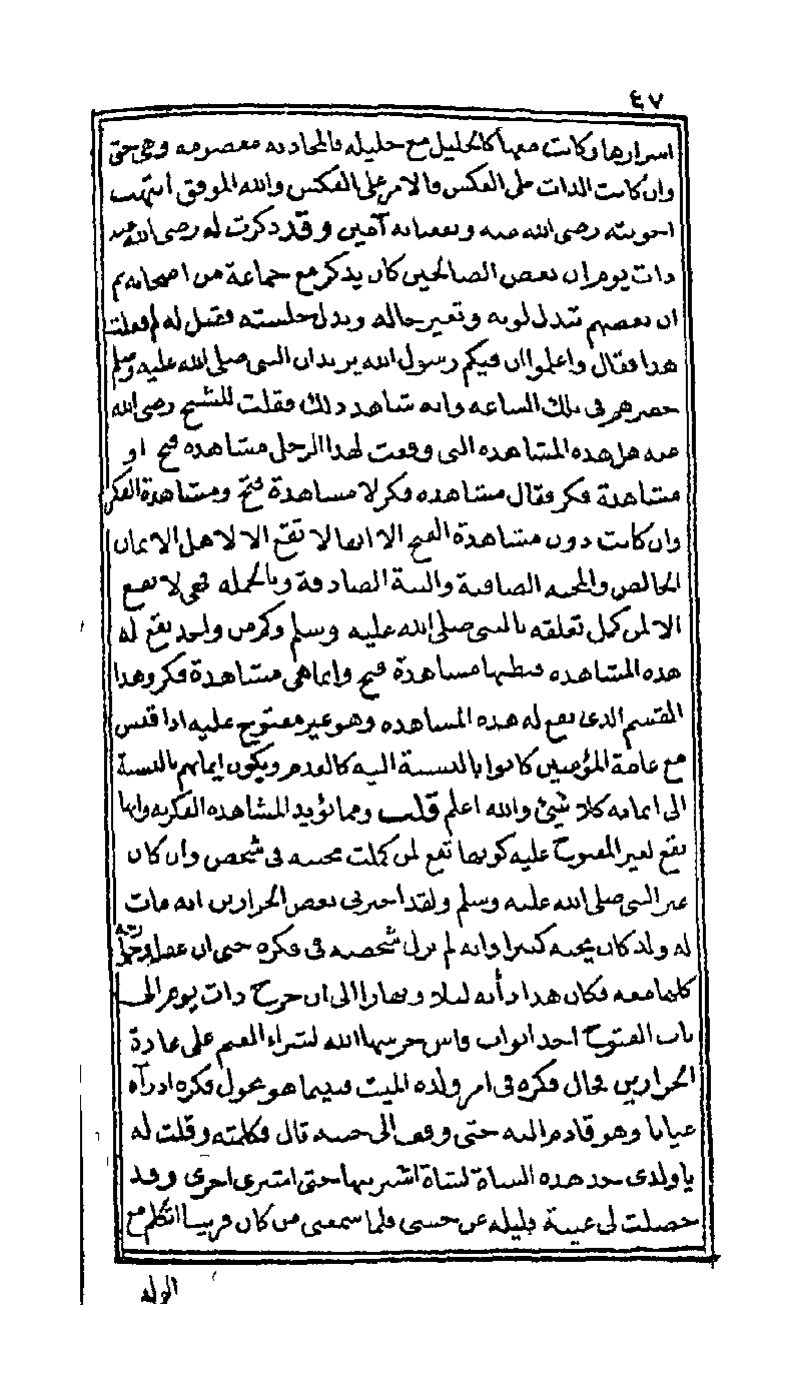 ٤٧
اسرارها وكانت معها كالخليل مع خليله فالمحادثه معصومه وهي حق
وان كانت الذات على العكس فالامر على العكس والله الموفق انتهت
اجوبته رضي الله عنه ونفعنا به آمين وقد ذكرت له رضي الله عنه
ذات يوم ان بعض الصالحين كان يذكر مع جماعة من اصحابه ثم
ان بعضهم تبدل لونه وتغير حاله وبدل جلسته فقيل له لم فعلت
هذا فقال واعلموا ان فيكم رسول الله يريد ان النبي صلى الله عليه وسلم
حضرهم في تلك الساعه وانه شاهد ذلك فقلت للشيخ رضي الله
عنه هل هذه المشاهده التي وقعت لهذا الرجل مشاهده فتح او
مشاهدة فكر فقال مشاهده فكر لا مشاهدة فتح ومشاهدة الفكر
وان كانت دون مشاهدة الفتح الا انها لا تقع الا لاهل الايمان
الخالص والمحبه الصافية والنية الصادقة وبالجمله فهي لا تقع
الا لمن كمل تعلقه بالنبي صلى الله عليه وسلم وكم من واحد تقع له
هذه المشاهده فيظنها مشاهدة فتح وانما هي مشاهدة فكر وهذا
القسم الذي تقع له هذه المشاهده وهو غير مفتوح عليه اذا قيس
مع عامة المؤمنين كانوا بالنسبة اليه كالعدم ويكون ايمانهم بالنسبة
الى ايمانه كلا شيئ والله اعلم قلت ومما يؤيد المشاهده الفكريه وانها
تقع لغير المفتوح عليه كونها تقع لمن كملت محبته في شخص وان كان
غير النبي صلى الله عليه وسلم ولقد اخبرني بعض الجزارين انه مات
له ولد كان يحبه كثيرا وانه لم يزل شخصه في فكره حتى ان عقله وجوارحه
كلها معه فكان هذا دأبه ليلا ونهارا الى ان خرج ذات يوم الى
باب الفتوح احد ابواب فاس حرسها الله لشراء الغنم على عادة
الجزارين فجال فكره في امر ولده الميت فبينما هو يجول فكره اذ رآه
عيانا وهو قادم اليه حتى وقف الى جنبه قال فكلمته وقلت له
يا ولدي خذ هذه الشاة لشاة اشتريتها حتى اشتري اخرى وقد
حصلت لي غيبة قليله عن حسي فلما سمعني من كان قريبا اتكلم مع
الولد